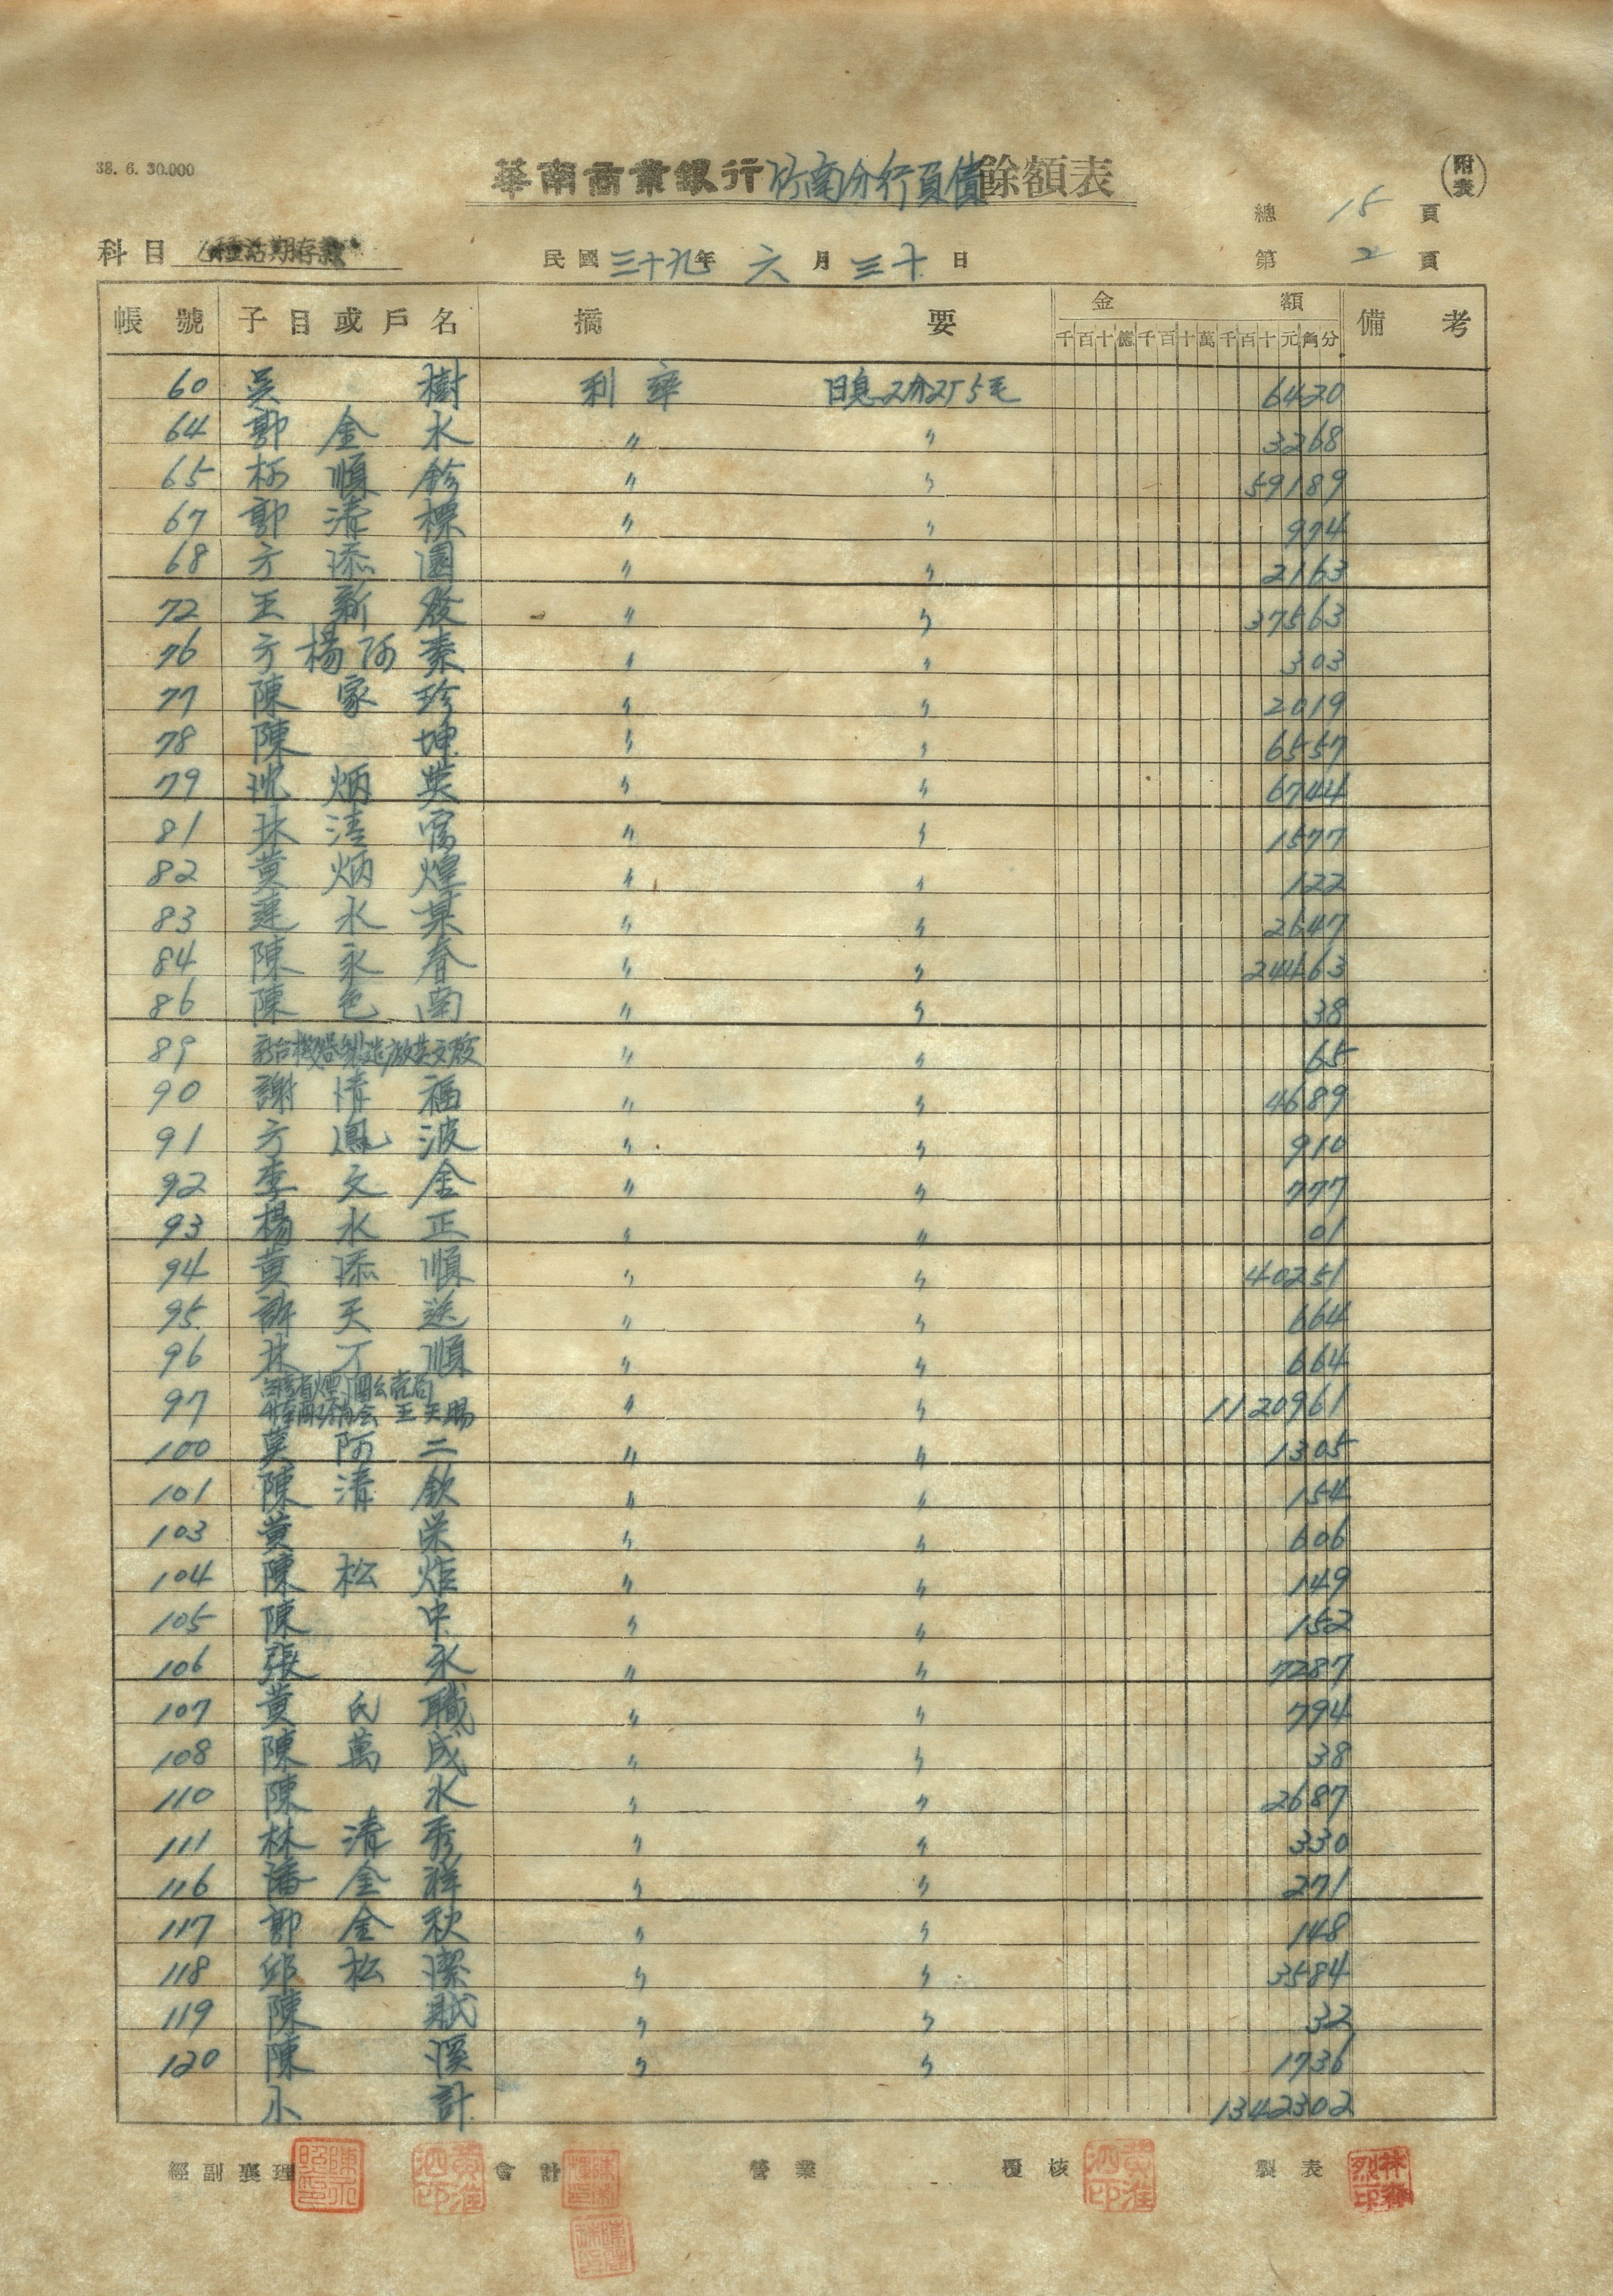 38. 6. 30.000
華南商業銀行竹南分行負債餘額表
附表
總 15 頁
科目 乙種活期存款
民國三十九年 六 月 三十 日
第 2 頁
帳號 子目或戶名 摘要 金額 備考
千百十億千百十萬千百十元角分
60 吳樹 利率 日息2分2厂5毛 6420
64 郭金水 〃 〃 3268
65 柯順鈴 〃 〃 59189
67 郭清標 〃 〃 974
68 方添園 〃 〃 2163
72 王新發 〃 〃 37563
76 方楊阿素 〃 〃 303
77 陳家珍 〃 〃 2019
78 陳坤 〃 〃 6557
79 沈炳英 〃 〃 6744
81 林清富 〃 〃 1577
82 黃炳煌 〃 〃 122
83 連水某 〃 〃 2647
84 陳永春 〃 〃 24463
86 陳色南 〃 〃 38
89 新台機器製造 〃 〃 65
90 謝情福 〃 〃 4689
91 方鳳波 〃 〃 910
92 李文金 〃 〃 777
93 楊水正 〃 〃 01
94 黃添順 〃 〃 40251
95 許天送 〃 〃 664
96 林丁順 〃 〃 664
97 王天賜 〃 〃 1120961
100 莫阿二 〃 〃 1305
101 陳清欽 〃 〃 154
103 黃荣 〃 〃 606
104 陳松炬 〃 〃 149
105 陳中 〃 〃 152
106 張永 〃 〃 7287
107 黃氏職 〃 〃 794
108 陳萬成 〃 〃 38
110 陳水 〃 〃 2687
111 林清秀 〃 〃 330
116 潘金祥 〃 〃 271
117 郭金秋 〃 〃 148
118 邱松潔 〃 〃 3584
119 陳賦 〃 〃 32
120 陳溪 〃 〃 1736
小計 1342302
經副襄理 會計 營業 覆核 製表